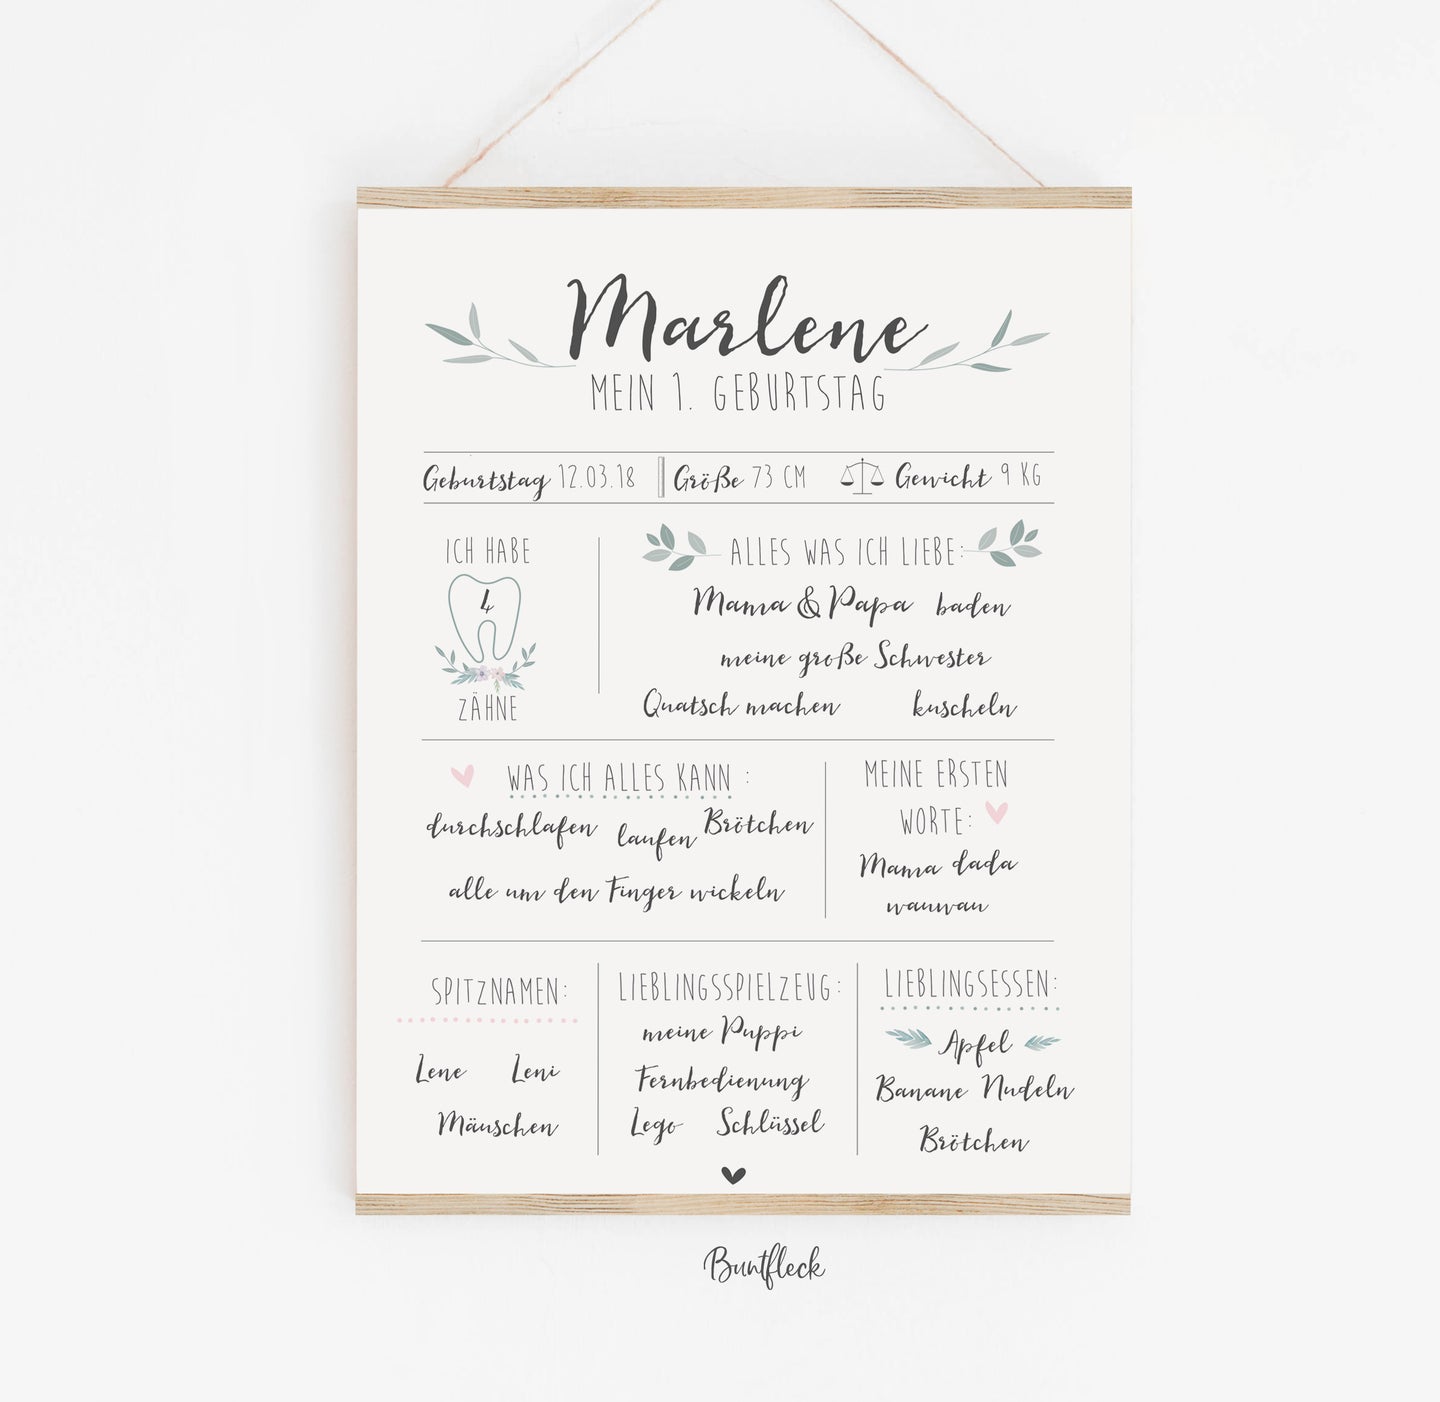 Marlene
MEIN 1. GEBURTSTAG
Geburtstag 12.03.18 Größe 73 CM Gewicht 9 KG
ICH HABE
4
ZÄHNE
ALLES WAS ICH LIEBE:
Mama & Papa baden
meine große Schwester
Quatsch machen kuscheln
WAS ICH ALLES KANN :
durchschlafen laufen Brötchen
alle um den Finger wickeln
MEINE ERSTEN
WORTE:
Mama dada
wauwau
SPITZNAMEN:
Lene Leni
Mäuschen
LIEBLINGSSPIELZEUG:
meine Puppi
Fernbedienung
Lego Schlüssel
LIEBLINGSESSEN:
Apfel
Banane Nudeln
Brötchen
Buntfleck